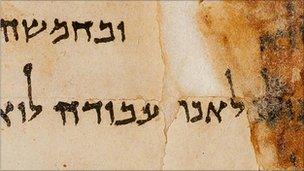 ובחמשה
מלאכת עבודה לוא